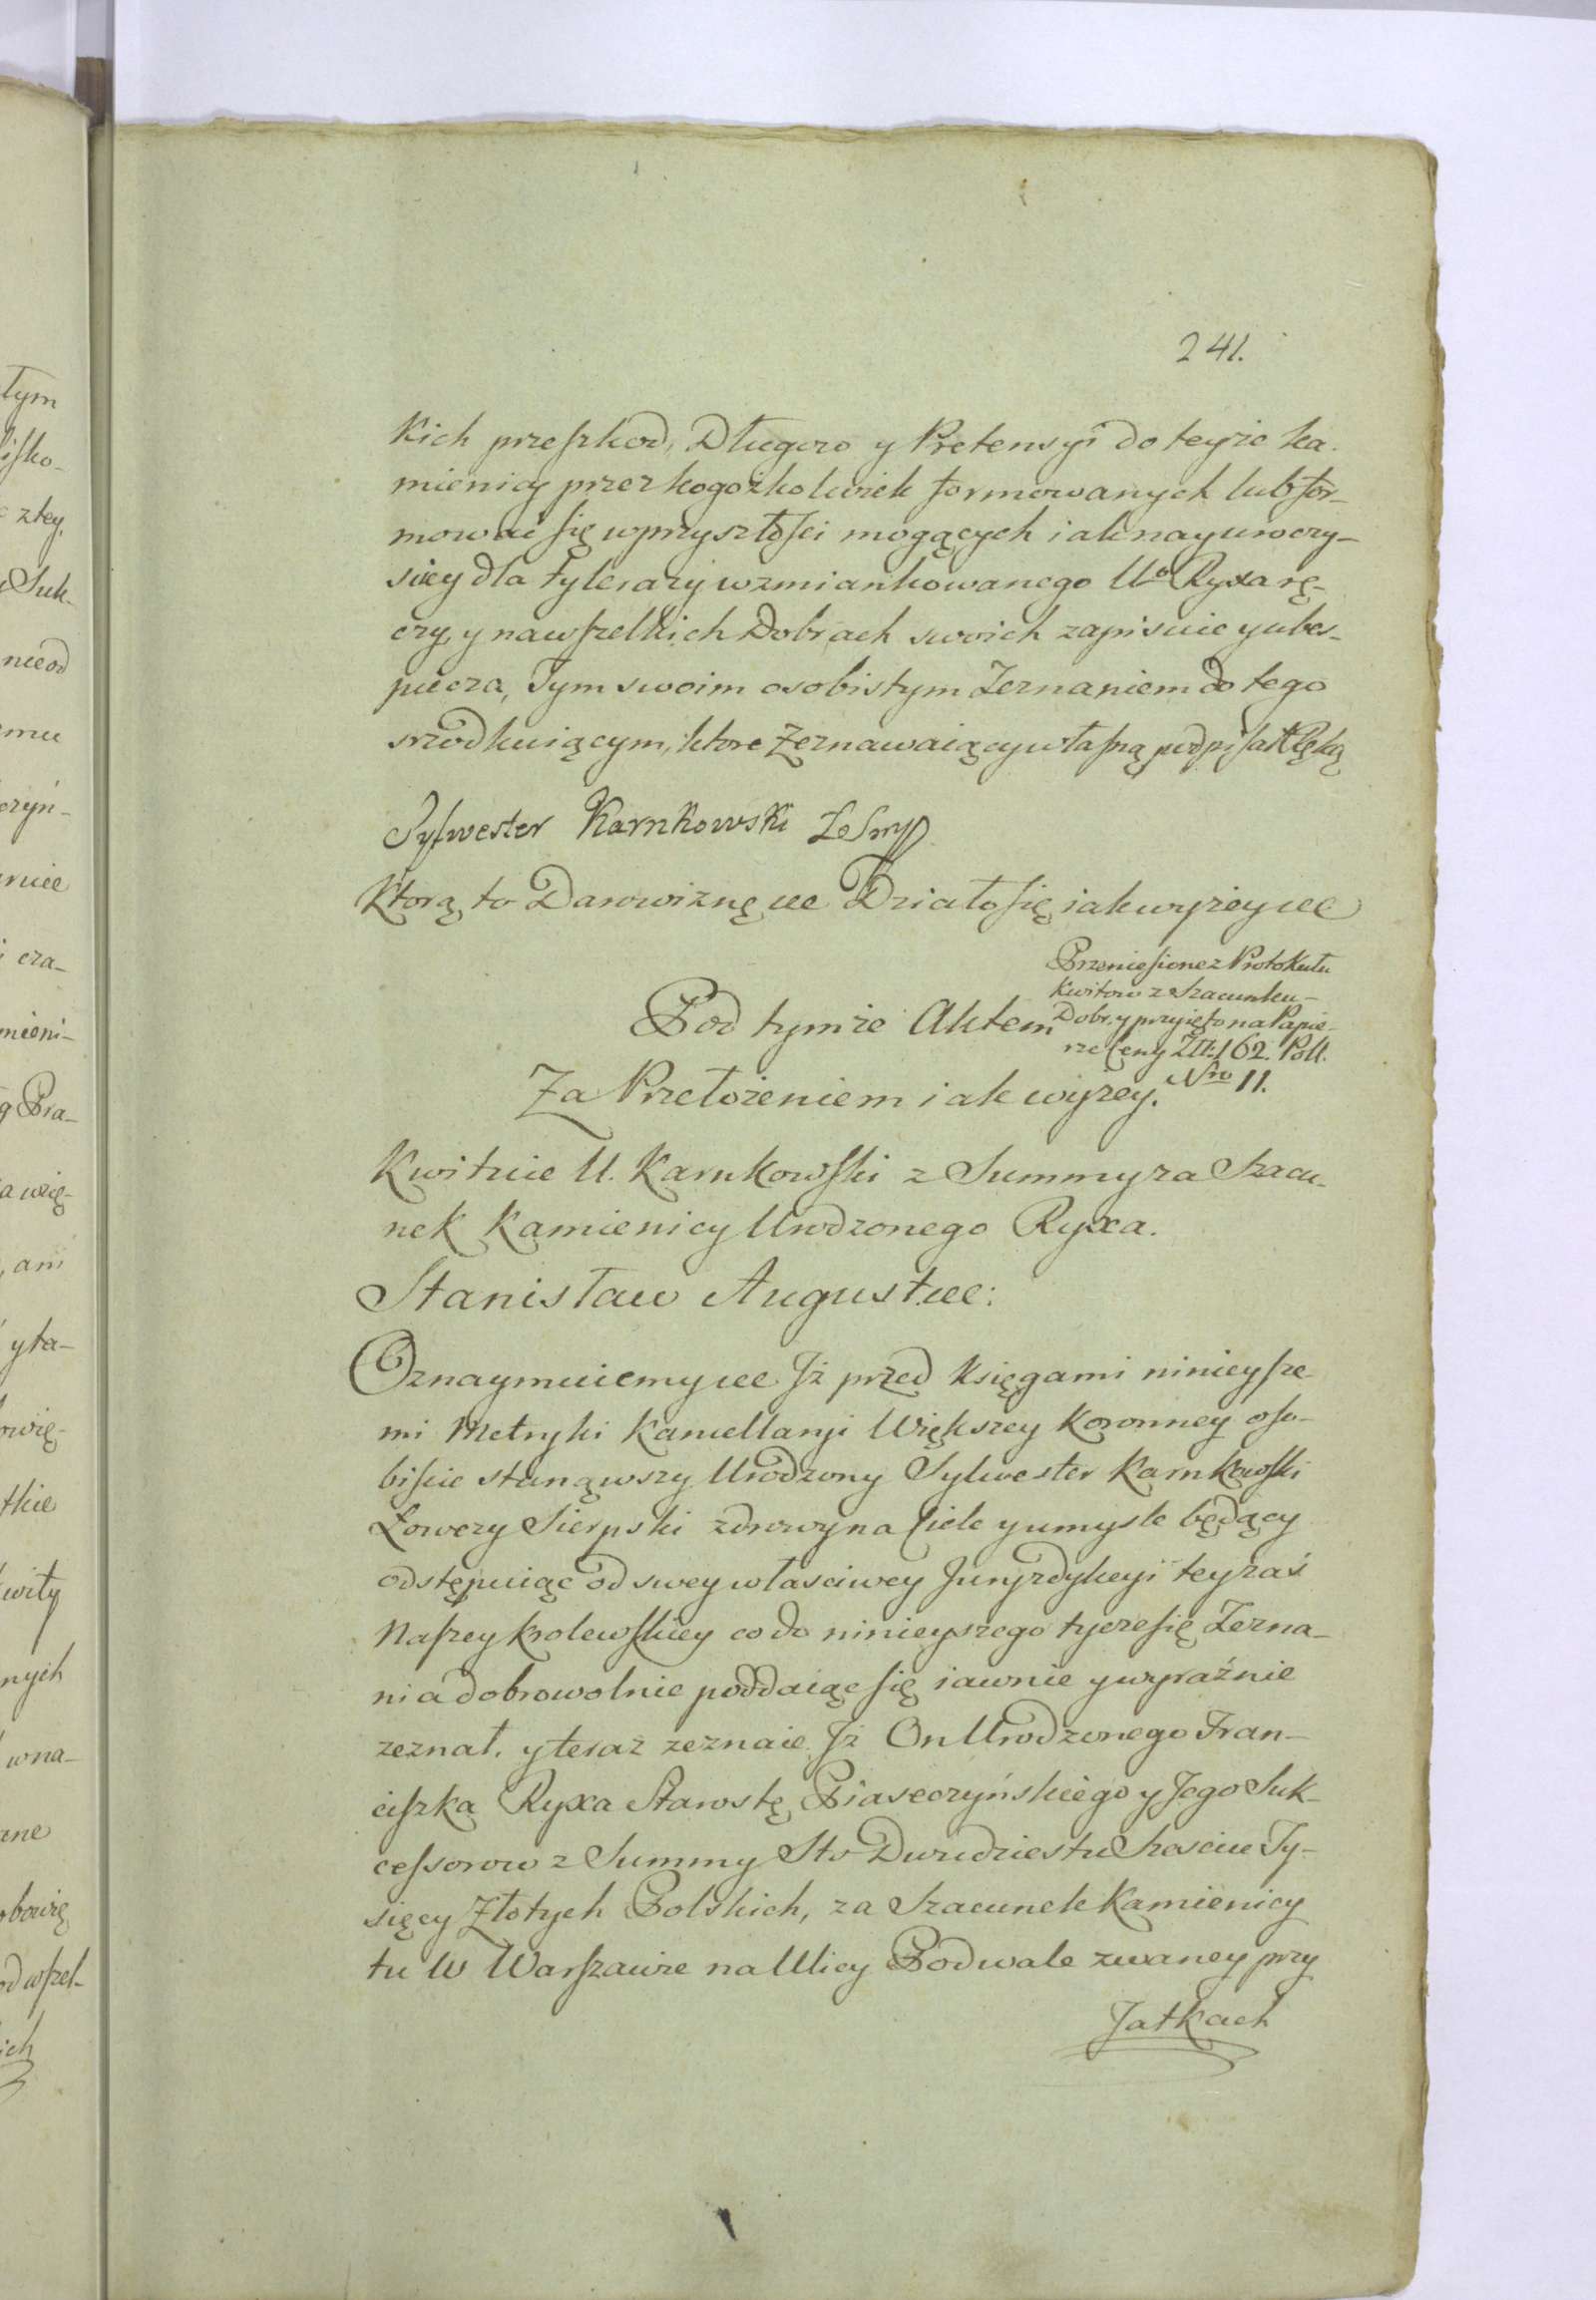 241.
kich przeszkod, Długow y Pretensyi do teyże ka-
mienicy przez kogożkolwiek formowanych lub for-
mować się w przyszłości mogących iak nayuroczy-
ściey dla tylerazy wzmiankowanego Uo Ryxa rę-
czy, y na wszelkich Dobrach swoich zapisuie y ubes-
piecza, Tym swoim osobistym Zeznaniem do tego
srzodkuiącym, ktore Zeznawaiący własną podpisał Ręką
Sylwester Karnkowski
Ktorą to Darowiznę etc Działo się iak wyżey etc
Przeniesione z Protokułu
Kwitow z Szacunku
Dobr, y przyięto na Papie-
rze Ceny Zł: 162. Poll.
Nro 11.
Pod tymże Aktem
Za Przełożeniem iak wyżey.
Kwituie U. Karnkowski z Summy za Szacu-
nek Kamienicy Urodzonego Ryxa.
Stanisław August etc:
Oznaymuiemy etc Iż przed Księgami ninieysze-
mi Metryki Kancellaryi Większey Koronney oso-
biście stanąwszy Urodzony Sylwester Karnkowski
Łowczy Sierpski zdrowy na Ciele y umysle będący
odstępuiąc od swey własciwey Juryzdykcyi tey zaś
Naszey krolewskiey co do ninieyszego tycze się Zezna-
nia dobrowolnie poddaiąc się iawnie y wyraźnie
zeznał. y teraz zeznaie. Iż On Urodzonego Fran-
ciszka Ryxa Starostę Piaseczyńskiego y Jego Suk-
cessorow z Summy Sto Dwudziestu Sześciu Ty-
sięcy Złotych Polskich, za Szacunek Kamienicy
tu w Warszawie na Ulicy Podwale zwaney przy
Jatkach